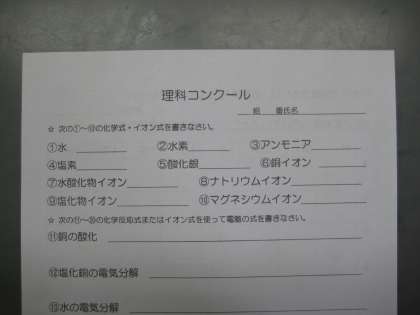 理科コンクール
組 番氏名
☆ 次の①～⑩の化学式・イオン式を書きなさい。
①水 ②水素 ③アンモニア
④塩素 ⑤酸化銀 ⑥銅イオン
⑦水酸化物イオン ⑧ナトリウムイオン
⑨塩化物イオン ⑩マグネシウムイオン
☆ 次の⑪～⑳の化学反応式またはイオン式を使って電離の式を書きなさい。
⑪銅の酸化
⑫塩化銅の電気分解
⑬水の電気分解